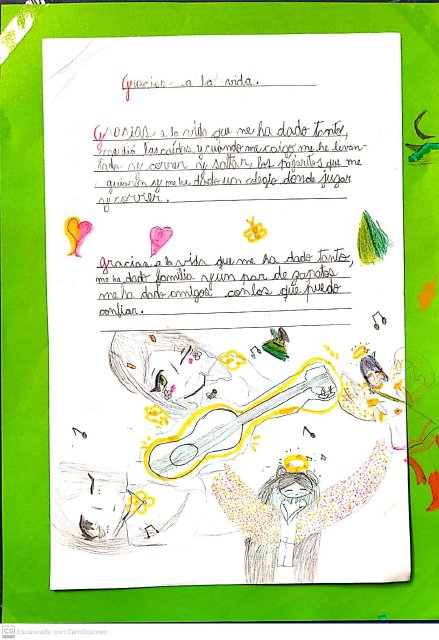 Gracias a la vida.
Gracias a la vida que me ha dado tanto,
me dió las caídas y cuando me caigo me he levan-
tado y correr y saltar los pajaritos que me
guiarón y me ha dado un colegio donde jugar
y correr.
gracias a la vida que me ha dado tanto,
me ha dado familia y un par de zapatos
me ha dado amigos con los que puedo
confiar.
CS Escaneado con CamScanner